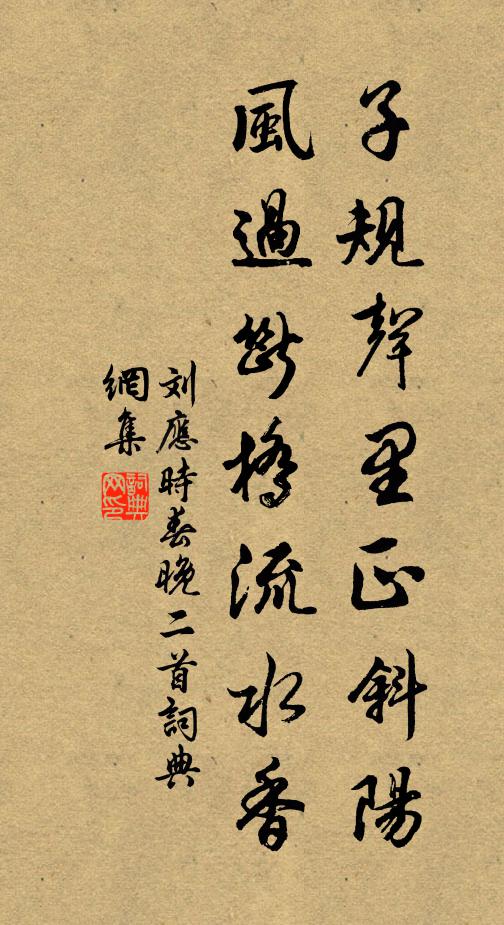 子規聲里正斜陽
風過斷橋流水香
刘應時春晚二首詞典
網集
詞典
网印